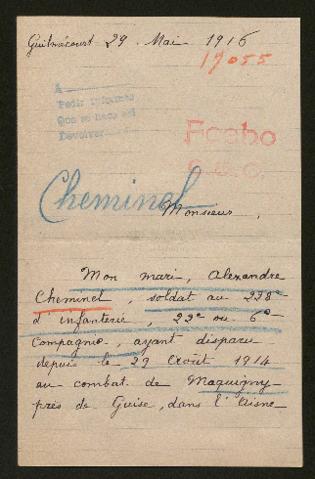 Guitrancourt 29 Mai 1916
19055
A
Pedir informes
Que se haga así
Devolver
Cheminel
Monsieur,
Mon mari, Alexandre
Cheminel, soldat au 228e
d'infanterie, 22e ou 6e
Compagnie, ayant disparu
depuis le 29 Août 1914
au combat de Maquigny
près de Guise, dans l'Aisne